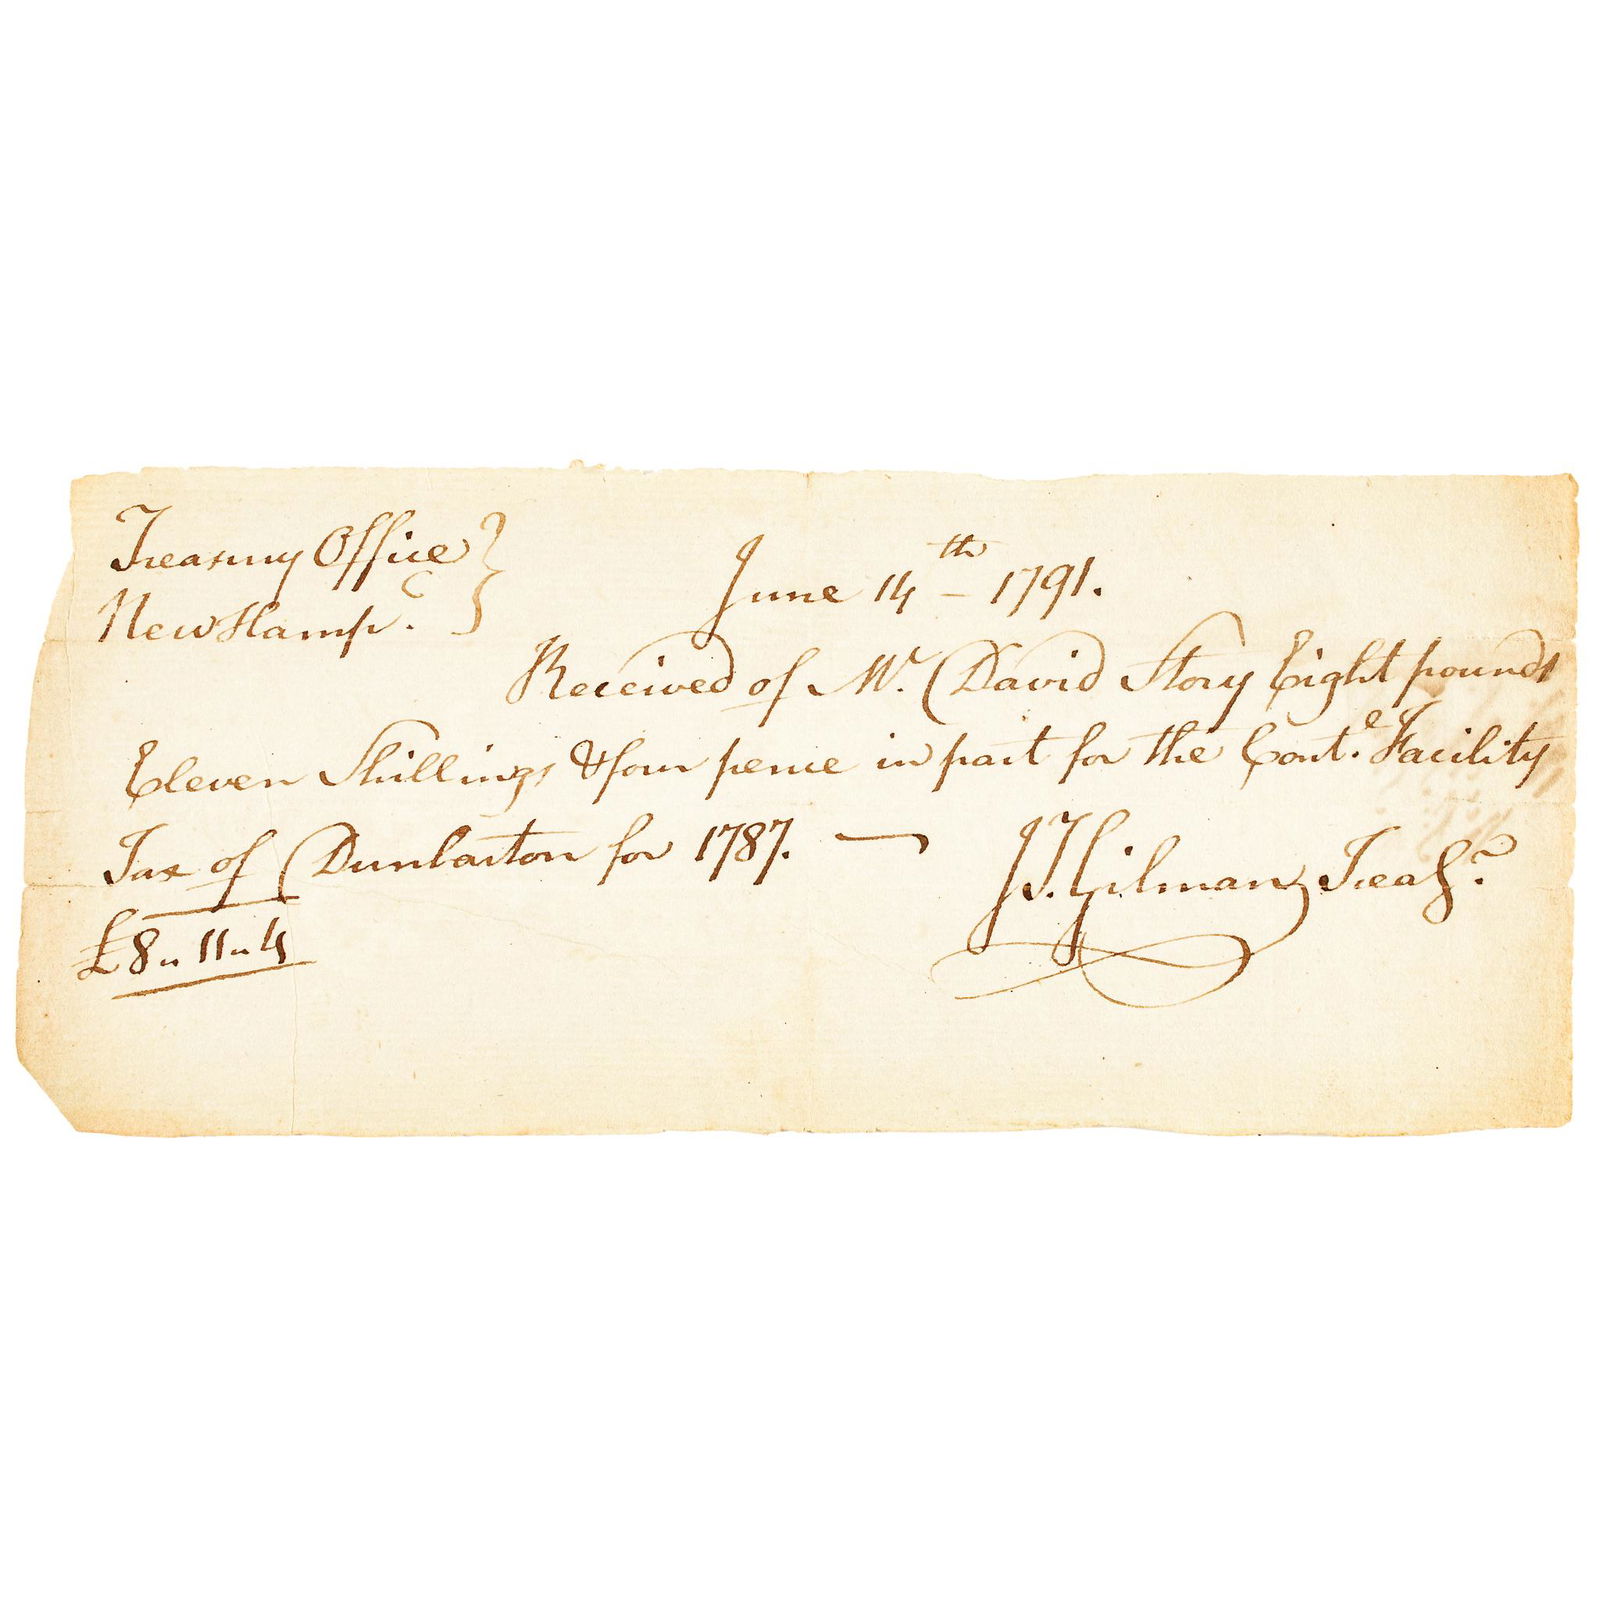 Treasury Office }
New Hampe. }
June 14th – 1791.
Received of Mr. David Story Eight pounds
Eleven Shillings & four pence in part for the Conte. Facility
Tax of Dunbarton for 1787. —
J T Gilman Treasr.
£8 " 11 " 4